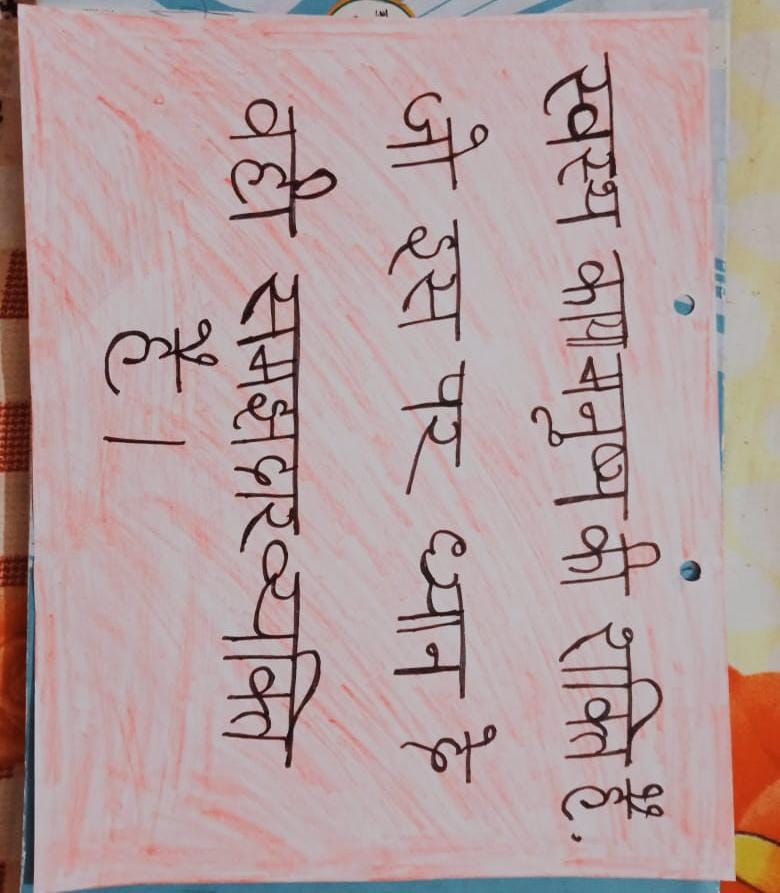 स्वस्थ काय मनुष्य की शक्ति है.
जो इस पर ध्यान दे
वही समझदार व्यक्ति
है।